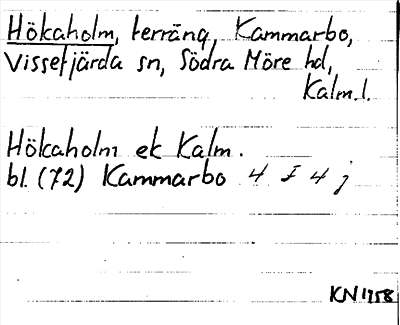 Hökaholm, terräng, Kammarbo,
Vissefjärda sn, Södra Möre hd,
Kalm. l.
Hökaholm ek Kalm.
bl. (72) Kammarbo 4 I 4 j
KN 1958